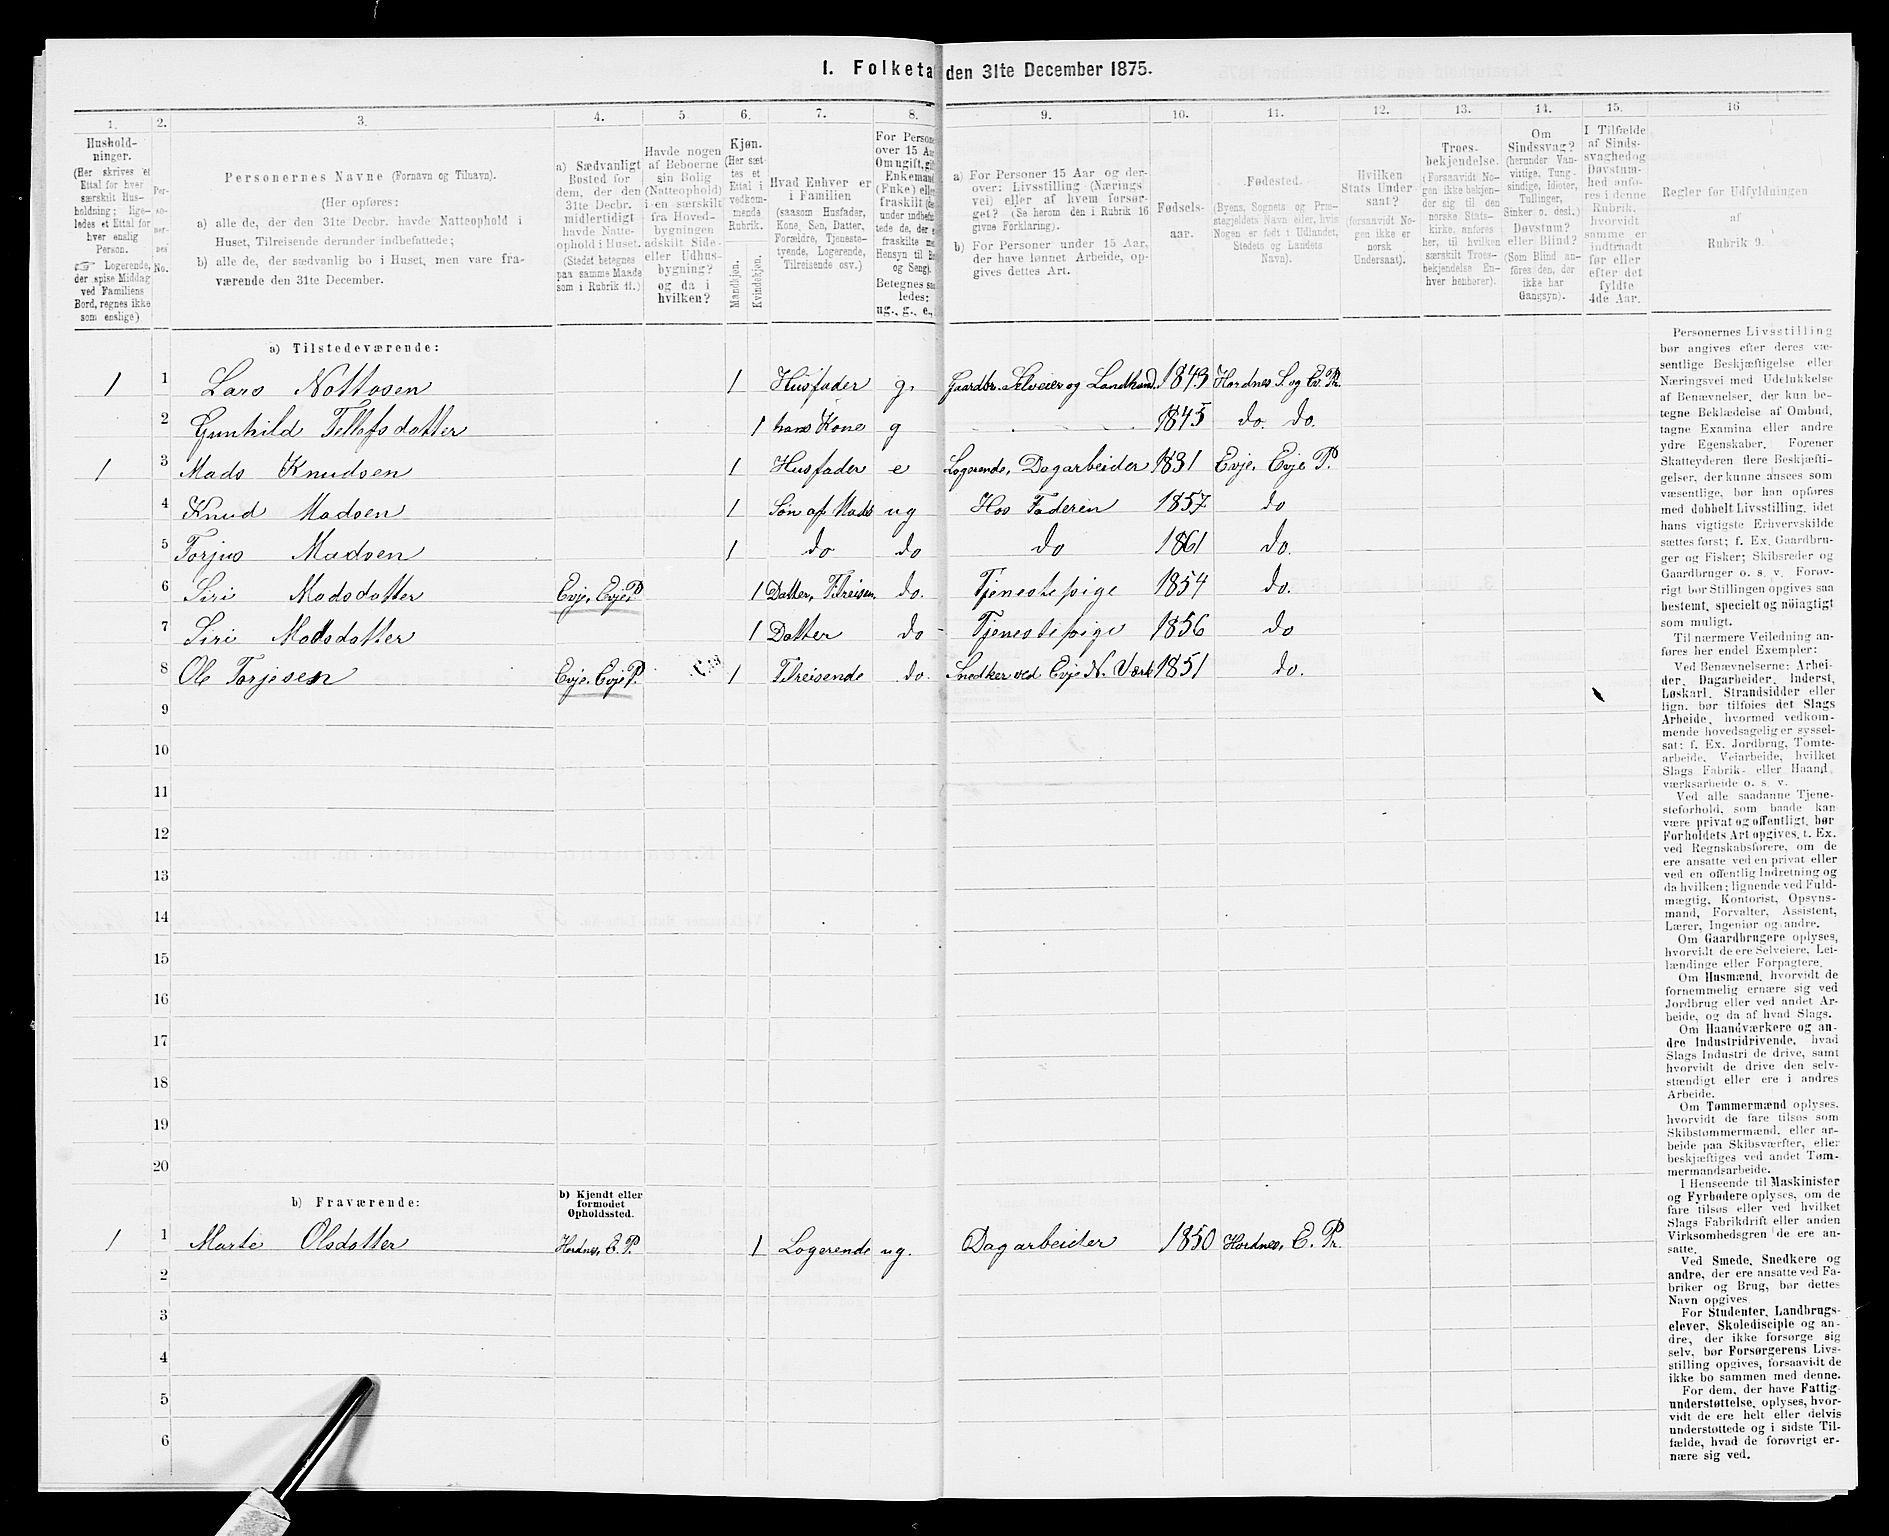 1. Folketæ den 31te December 1875.
1. 2. 3. 4. 5. 6. 7. 8. 9. 10. 11. 12. 13. 14. 15. 16
Hushold-
ninger.
(Her skrives et
Ettal for hver
særskilt Hus-
holdning; lige-
ledes et Ettal for
hver enslig
Person.
☞ Logerende,
der spise Middag
ved Familiens
Bord, regnes ikke
som enslige)
Per-
so-
ner-
nes
No.
Personernes Navne (Fornavn og Tilnavn).
(Her opføres:
a) alle de, der den 31te Decbr. havde Natteophold i
Huset, Tilreisende derunder indbefattede;
b) alle de, der sædvanlig bo i Huset, men vare fra-
værende den 31te December.
a) Sædvanligt
Bosted for
dem, der den
31te Decbr.
midlertidigt
havde Natte-
ophold i Huset.
(Stedet betegnes
paa samme Maade
som i Rubrik 11.)
Havde nogen
af Beboerne
sin Bolig
(Natteophold)
i en særskilt
fra Hoved-
bygningen
adskilt Side-
eller Udhus-
bygning?
og da i
hvilken?
Kjøn.
(Her sæt-
tes et
Ettal i
vedkom-
mende
Rubrik.
Mandkjøn.
Kvindekjøn.
Hvad Enhver er
i Familien
(saasom Husfader,
Kone, Søn, Datter,
Forældre, Tjeneste-
tyende, Logerende,
Tilreisende osv.)
For Persone
over 15 Aa
Om ugift, gif
Enkemand
(Enke) elle
fraskilt (de
under indbefa
tede de, der e
fraskilte m
Hensyn til B
og Seng).
Betegnes saa
ledes:
ug., g., e.,
a) For Personer 15 Aar og der-
over: Livsstilling (Nærings
vei) eller af hvem forsør-
get? (Se herom den i Rubrik 16
givne Forklaring).
b) For Personer under 15 Aar,
der have lønnet Arbeide, op-
gives dettes Art.
Fødsels-
aar.
Fødested.
(Byens, Sognets og Præ-
stegjeldets Navn eller, hvis
Nogen er født i Udlandet,
Stedets og Landets
Navn).
Hvilken
Stats Under-
saat?
(forsaavidt No-
gen ikke er
norsk
Undersaat).
Troes-
bekjendelse.
(Forsaavidt No-
gen ikke bekjen-
der sig til den
norske Stats-
kirke, anføres
her, til hvilken
særskilt Troes-
bekjendelse En-
hver henhører).
Om
Sindssvag?
(herunder Van-
vittige, Tung-
sindige, Idioter,
Tullinger,
Sinker o. desl.)
Døvstum?
eller Blind?
(Som Blind an-
føres den, der
ikke har
Gangsyn).
I Tilfælde
af Sinds-
svaghed og
Døvstum-
hed anfø-
res i denne
Rubrik,
hvorvidt
samme er
indtraadt
før eller
efter det
fyldte
4de Aar.
Regler for Udfyldningen
af
Rubrik 9.
a) Tilstedeværende:
1 1 Lars Nottosen 1 Husfader g. Gaardbr. Selveier og Landhand. 1843 Hordnes S. og Ev. Pr.
2 Gunhild Tellefsdatter 1 hans Kone g 1845 do. do.
1 3 Mads Knudsen 1 Husfader e Logerende, Dagarbeider 1831 Evje, Evje P.
4 Knud Madsen 1 Søn af Mads ug Hos Faderen 1857 do
5 Torjus Madsen 1 do do do 1861 do.
6 Siri Madsdatter Evje, Evje P 1 Datter, Tilreisen. do. Tjenestepige 1854 do.
7 Siri Madsdatter 1 Datter do Tjenestepige 1856 do
8 Ole Torjesen Evje, Evje P. 1 Tilreisende do. Snedker ved Evje N. Værk 1851 do.
9
10
11
12
13
14
15
16
17
18
19
20
b) Fraværende:
b) Kjendt eller
formodet
Opholdssted.
1 1 Marte Olsdatter Hordnes, E. P. 1 Logerende ug. Dagarbeider 1850 Hordnes, E. Pr.
2
3
4
5
6
Personernes Livsstilling
bør angives efter deres væ-
sentlige Beskjæftigelse eller
Næringsvei med Udelukkelse
af Benævnelser, der kun be-
tegne Beklædelse af Ombud,
tagne Examina eller andre
ydre Egenskaber. Forener
Skatteyderen flere Beskjæfti-
gelser, der kunne ansees som
væsentlige, bør han opføres
med dobbelt Livsstilling, idet
hans vigtigste Erhvervskilde
sættes først; f. Ex. Gaardbru-
ger og Fisker; Skibsreder og
Gaardbruger o. s. v. Forøv-
rigt bør Stillingen opgives saa
bestemt, specielt og nøiagtigt
som muligt.
Til nærmere Veiledning an-
føres her endel Exempler:
Ved Benævnelserne: Arbei-
der, Dagarbeider, Inderst,
Løskarl, Strandsidder eller
lign. bør tilføies det Slags
Arbeide, hvormed vedkom-
mende hovedsagelig er syssel-
sat: f. Ex. Jordbrug, Tomte-
arbeide, Veiarbeide, hvilket
Slags Fabrik- eller Haand
værksarbeide o. s. v.
Ved alle saadanne Tjene-
steforhold, som baade kan
være privat og offentligt, bør
Forholdets Art opgives, t. Ex.
ved Regnskabsførere, om de
ere ansatte ved en privat eller
ved en offentlig Indretning og
da hvilken; lignende ved Fuld-
mægtig, Kontorist, Opsyns-
mand, Forvalter, Assistent,
Lærer, Ingeniør og andre.
Om Gaardbrugere oplyses,
hvorvidt de ere Selveiere, Lei-
lændinge eller Forpagtere.
Om Husmænd, hvorvidt de
fornemmelig ernære sig ved
Jordbrug eller ved andet Ar-
beide, og da af hvad Slags.
Om Haandværkere og an-
dre Industridrivende, hvad
Slags Industri de drive, samt
hvorvidt de drive den selv-
stændigt eller ere i andres
Arbeide.
Om Tømmermænd oplyses,
hvorvidt de fare tilsøs som
Skibstømmermænd, eller ar-
beide paa Skibsværfter, eller
beskjæftiges ved andet Tøm-
mermandsarbeide.
I Henseende til Maskinister
og Fyrbødere oplyses, om de
fare tilsøs eller ved hvilket
Slags Fabrikdrift eller anden
Virksomhedsgren de ere an-
satte.
Ved Smede, Snedkere og
andre, der ere ansatte ved Fa-
briker og Brug, bør dettes
Navn opgives.
For Studenter, Landbrugs-
elever, Skoledisciple og an-
dre, der ikke forsørge sig
selv, bør Forsørgerens Livs-
stilling opgives, forsaavidt de
ikke bo sammen med denne.
For dem, der have Fattig-
understøttelse, oplyses, hvor-
vidt de ere helt eller delvis
understøttede og i sidste Til-
fælde, hvad de forøvrigt er-
nære sig ved.